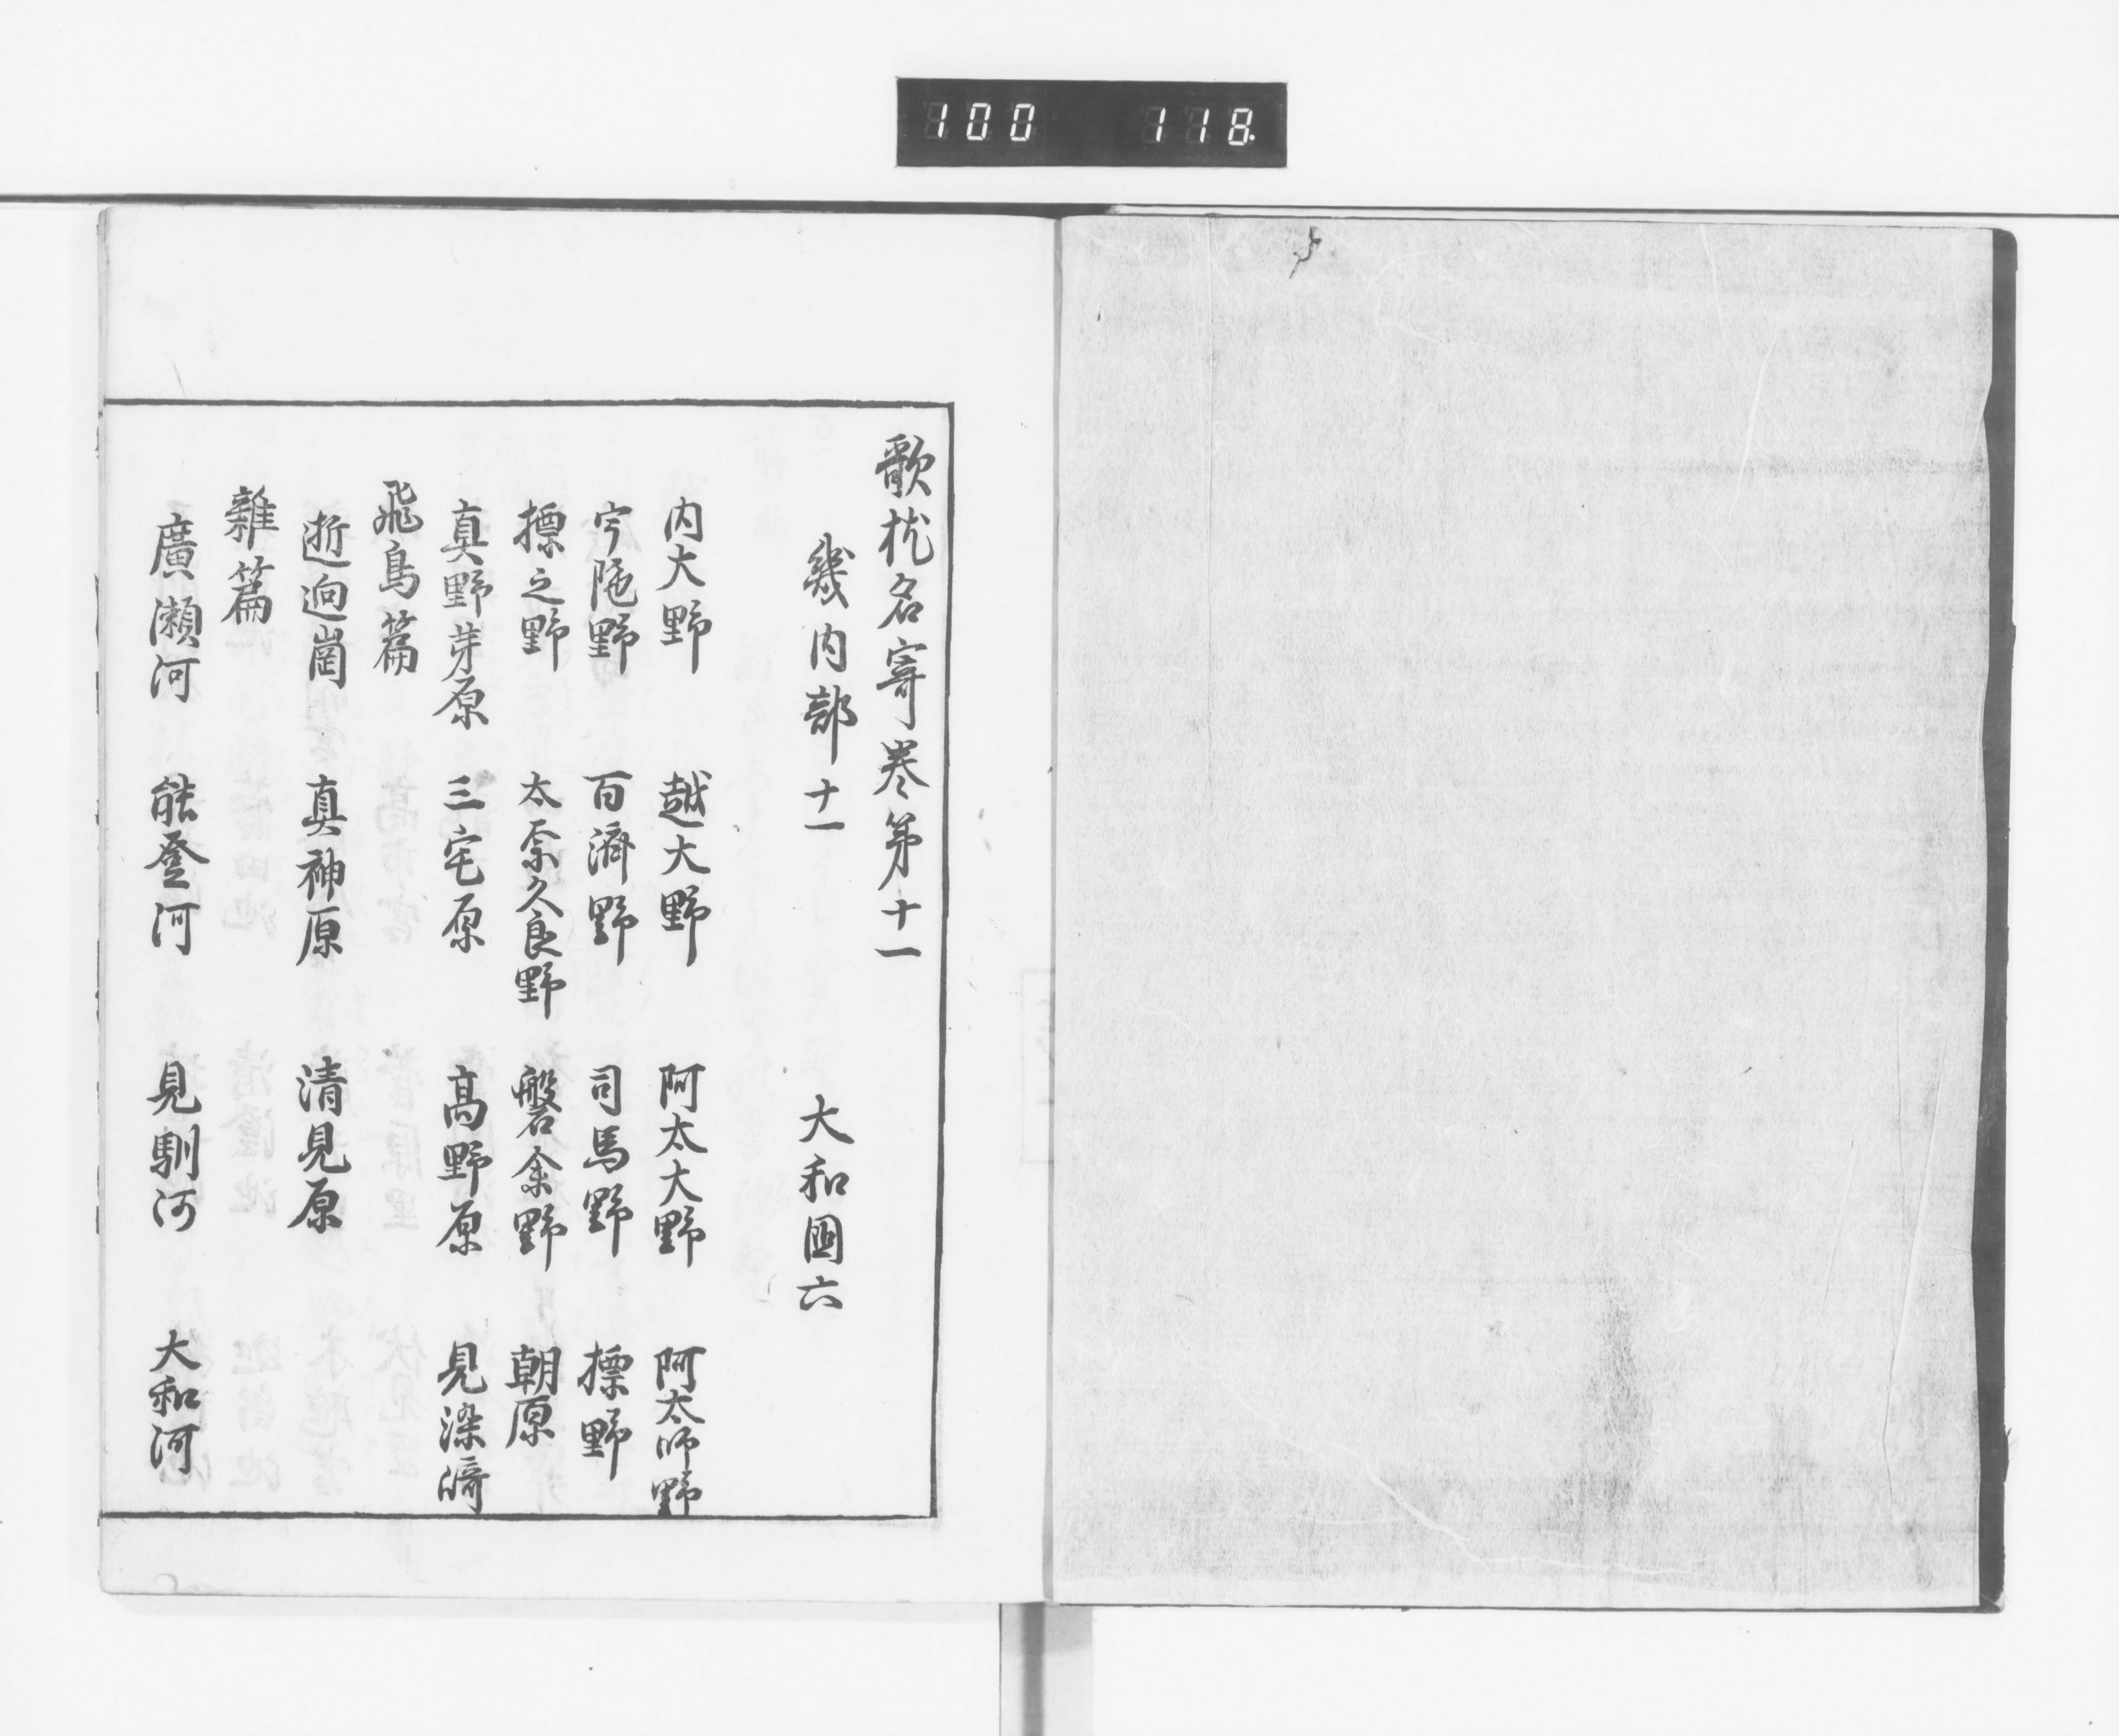 100 118
歌枕名寄巻第十一
幾内部十一 大和國六
内大野 越大野 阿太大野 阿太師野
宇陁野 百濟野 司馬野 標野
標之野 太柰久良野 磐余野 朝原
真野芽原 三宅原 髙野原 見染﨑
飛鳥篇
逝迴崗 真神原 清見原
雜篇
廣瀬河 能登河 見馴河 大和河